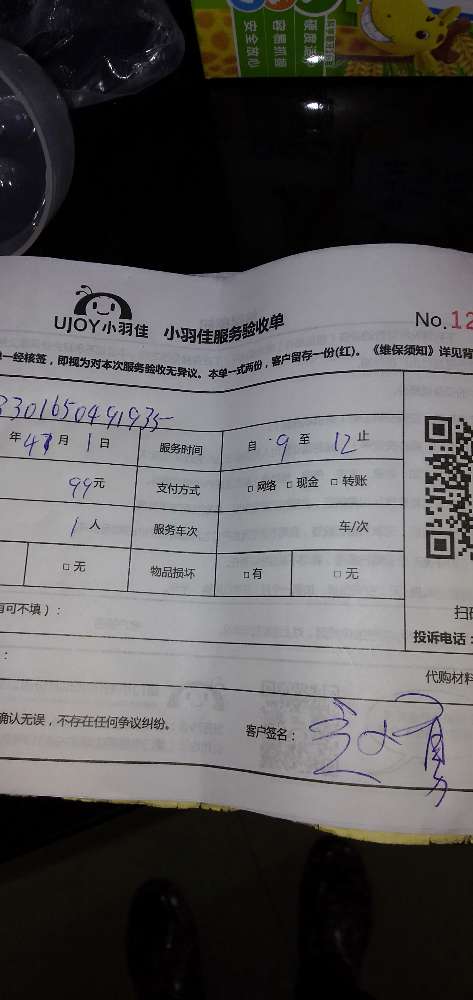 安全放心
容易抓握
硬度适
UJOY小羽佳 小羽佳服务验收单 No.12
一经核签，即视为对本次服务验收无异议。本单一式两份，客户留存一份(红)。《维保须知》详见背
3301650491935
年 4 月 1 日 服务时间 自 9 至 12 止
99元 支付方式 □ 网络 □ 现金 □ 转账
1 人 服务车次 车/次
□ 无 物品损坏 □有 □ 无
有可不填）：
扫
投诉电话：
：
代购材料
确认无误，不存在任何争议纠纷。
客户签名：